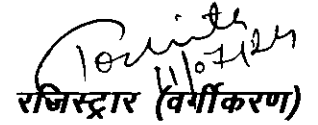 11/07/24
रजिस्ट्रार (वर्गीकरण)